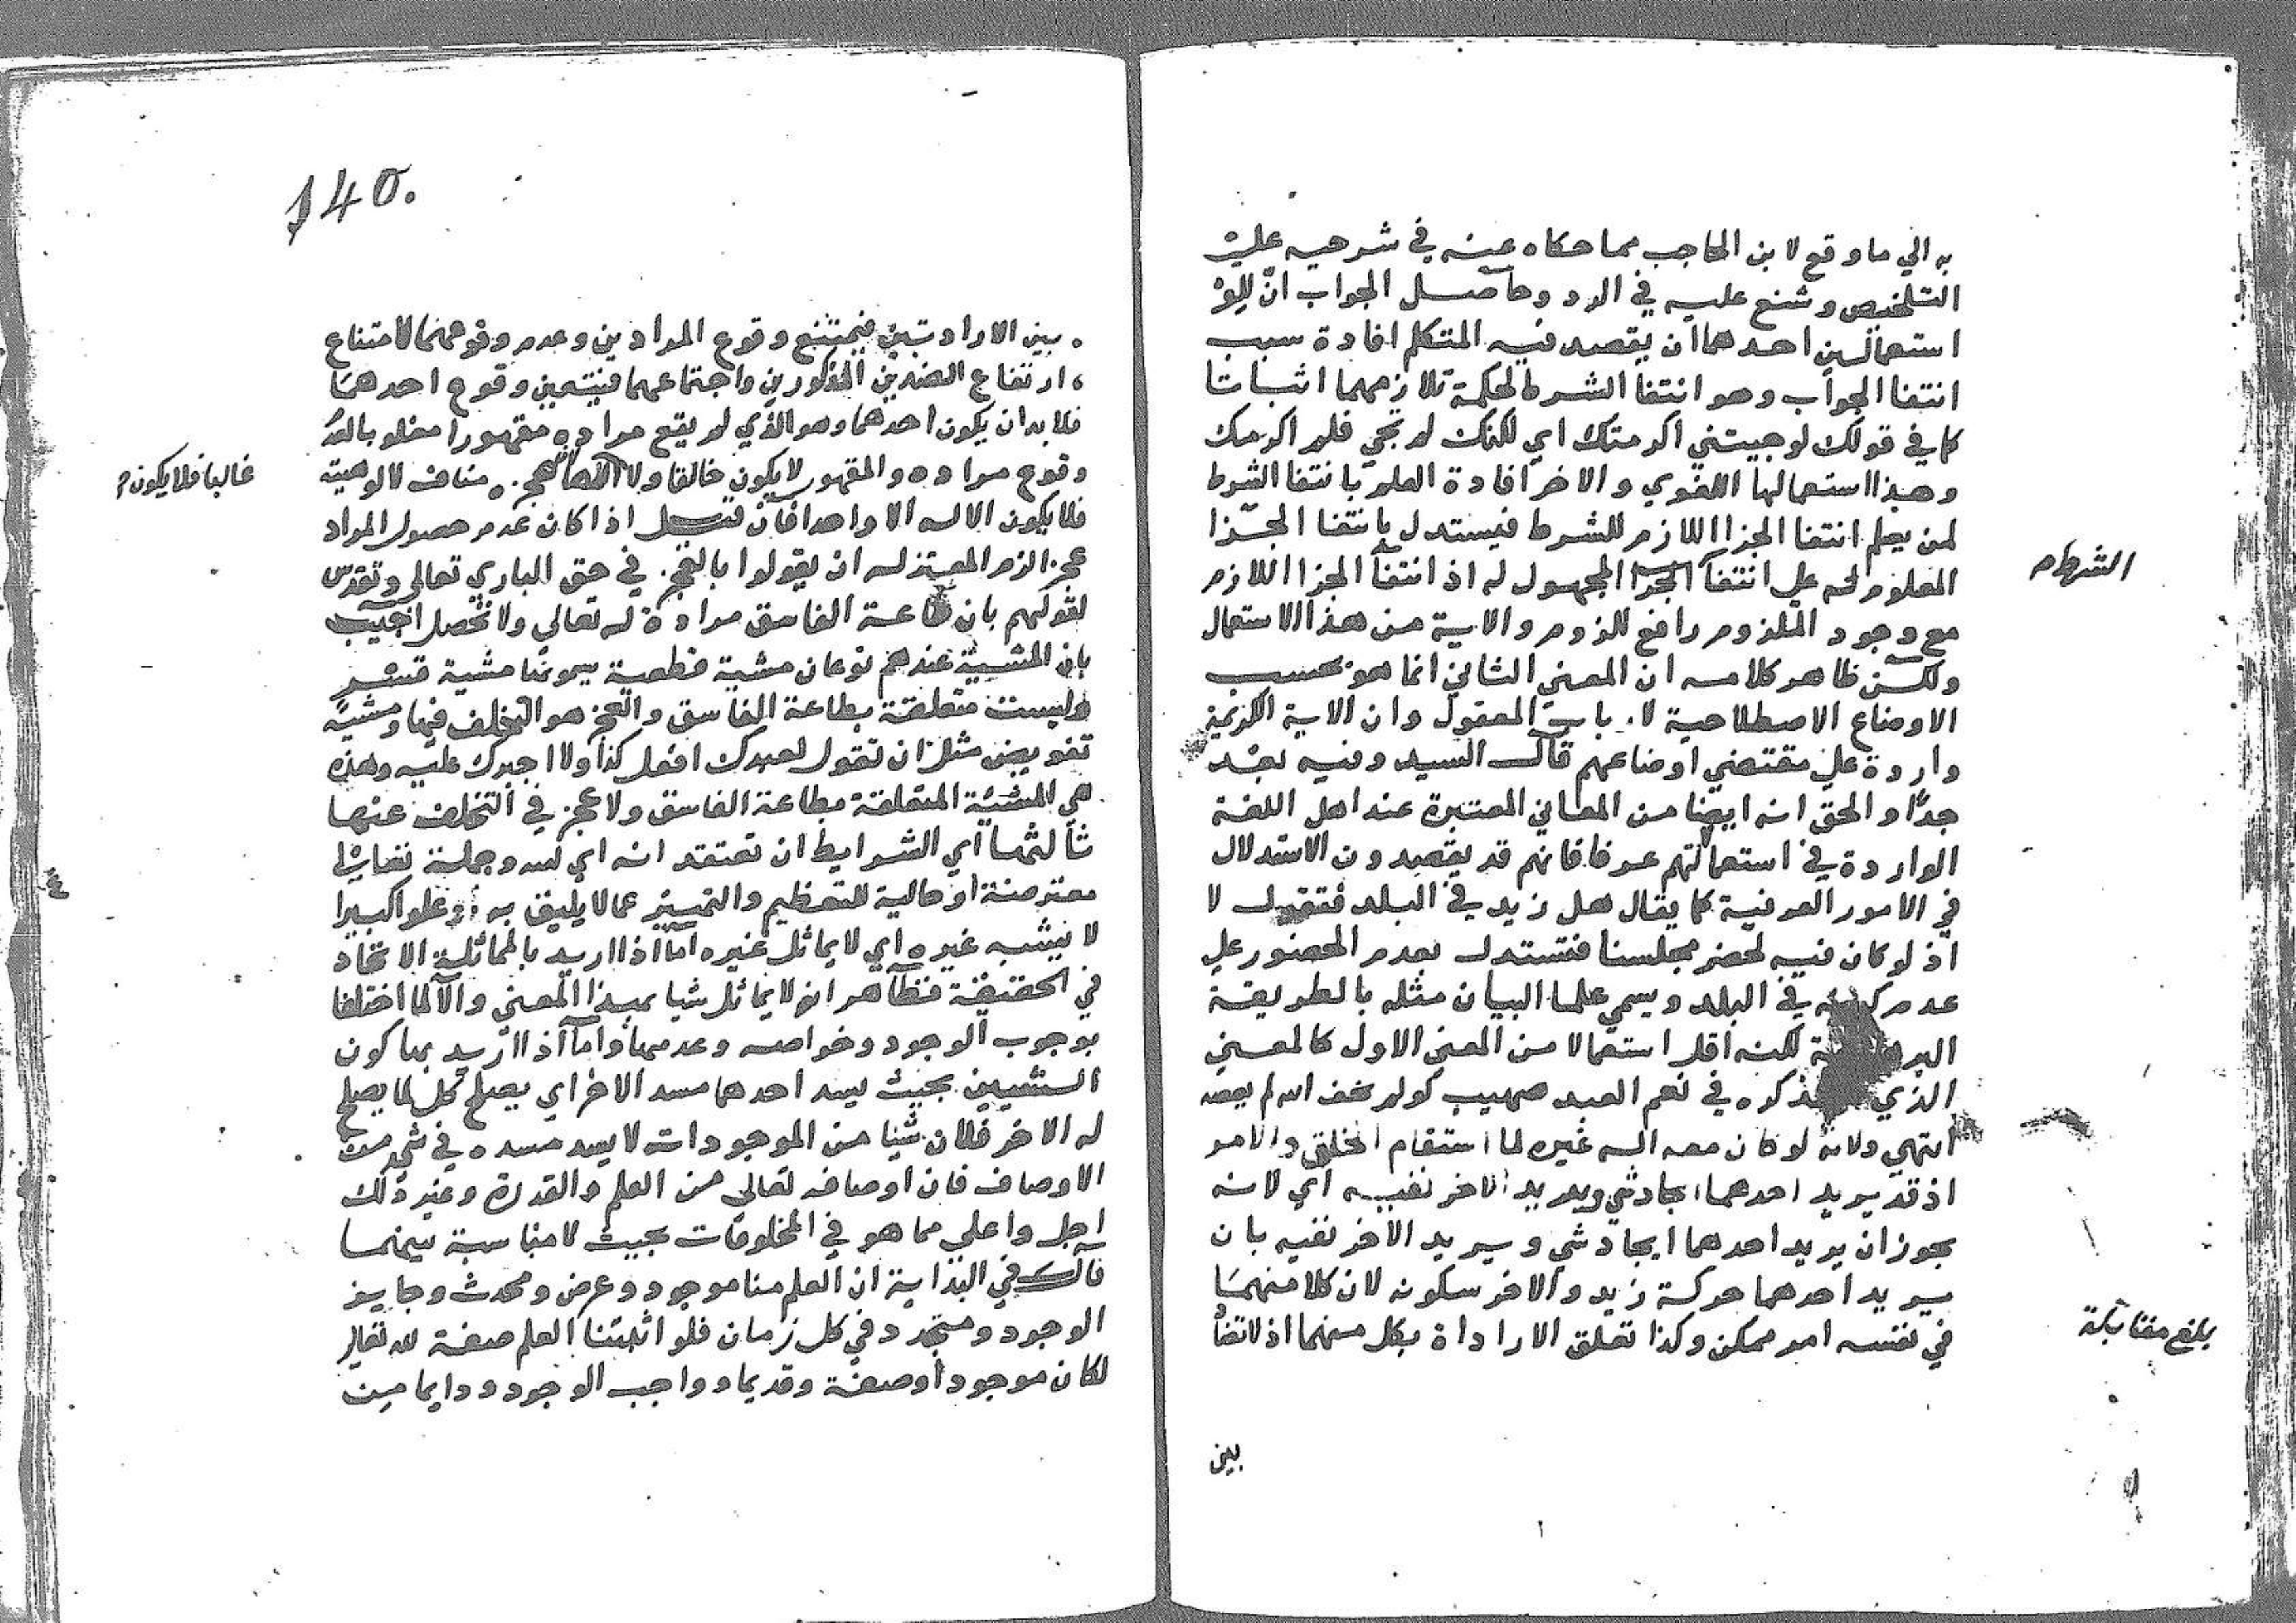 به الي ما وقع لابن الحاجب مما حكاه عنه في شرحيه علي
التلخيص وشنع عليه في الرد وحاصل الجواب انّ للو
استعمالين احدهما ان يقصد فيه المتكلم افادة سبب
انتفا الجواب وهو انتفا الشرط لحكمة تلازمهما اثباتا
كما في قولك لو جيتني اكرمتك اي لكنك لم تجي فلم اكرمك
وهذا استعمالها اللغوي والاخر افادة العلم بانتفا الشرط
لمن يعلم انتفا الجزا اللازم للشرط فيستدل بانتفا الجزا
المعلوم له علي انتفا الجزا المجهول له اذ انتفا الجزا اللازم
الشرط م
مع وجود الملزوم رافع للزوم والاية من هذا الاستعمال
ولكن ظاهر كلامه ان المعني الثاني انما هو بحسب
الاوضاع الاصطلاحية لارباب المعقول وان الاية الكريمة
واردة علي مقتضي اوضاعهم قال السيد وفيه بعد
جدّا والحق انه ايضا من المعاني المعتبرة عند اهل اللغة
الواردة في استعمالاتهم عرفا فانهم قد يقصدون الاستدلال
في الامور العرفية كما يقال هل زيد في البلد فتقول لا
اذ لو كان فيه لحضر مجلسنا فتستدل بعدم الحضور علي
عدم كونه في البلد ويسمي علما البيان مثله بالطريقة
لكنه اقل استعمالا من المعني الاول كالمعني
الذي ذكره في نعم العبد صهيب لو لم يخف الله لم يعصه
انتهي ولانه لو كان معه اله غيره لما استقام الخلق والامر
اذ قد يريد احدهما ايجاد شي ويريد الاخر نفيه اي لانه
يجوز ان يريد احدهما ايجاد شي ويريد الاخر نفيه بان
يريد احدهما حركة زيد والاخر سكونه لان كلا منهما
في نفسه امر ممكن وكذا تعلق الارادة بكل منهما اذ لا تضاد
بلغ مقابلة
بين
140.
بين الارادتين فيمتنع وقوع المرادين وعدم وقوعهما لامتناع
ارتفاع الضدين المذكورين واجتماعهما فيتعين وقوع احدهما
فلابد ان يكون احدهما وهو الذي لم يقع مراده مقهورا مغلوبا لعدم
وقوع مراده والمقهور لا يكون خالقا ولا الها لعجزه مناف لالوهيته
غالبا فلا يكون
فلا يكون الاله الا واحدا فان قيل اذا كان عدم حصول المراد
عجز الزم المعتزلة ان يقولوا بالعجز في حق الباري تعالي وتقدس
لقولهم بان طاعة الفاسق مرادة له تعالي ولا تحصل اجيب
بان المشية عندهم نوعان مشية قطعية يسمونها مشية قسر
وليست متعلقة بطاعة الفاسق والعجز هو التخلف فيها ومشية
تفويض مثل ان تقول لعبدك افعل كذا ولا اجبرك عليه وهذه
هي المشية المتعلقة بطاعة الفاسق ولا عجز في التخلف عنها
ثالثها اي الشرايط ان تعتقد انه اي الله وجملة تعالي
معترضة او حالية للتعظيم والتمييز عما لا يليق به وعلوا كبيرا
لا يشبه غيره اي لا يماثل غيره اما اذا اريد بالمماثلة الاتحاد
في الحقيقة فظاهر انه لا يماثل شيا بهذا المعني والا لما اختلفا
بوجوب الوجود وخواصه وعدمها واما اذا اريد بها كون
الشيين بحيث يسد احدهما مسد الاخر اي يصلح كل لما يصلح
له الاخر فلان شيا من الموجودات لا يسد مسده في شي من
الاوصاف فان اوصافه تعالي من العلم والقدرة وغير ذلك
اجل واعلي مما هو في المخلوقات بحيث لا مناسبة بينهما
قال في البداية ان العلم منا موجود وعرض ومحدث وجايز
الوجود ومتجدد في كل زمان فلو اثبتنا العلم صفة لله تعالي
لكان موجودا وصفة وقديما وواجب الوجود ودايما من